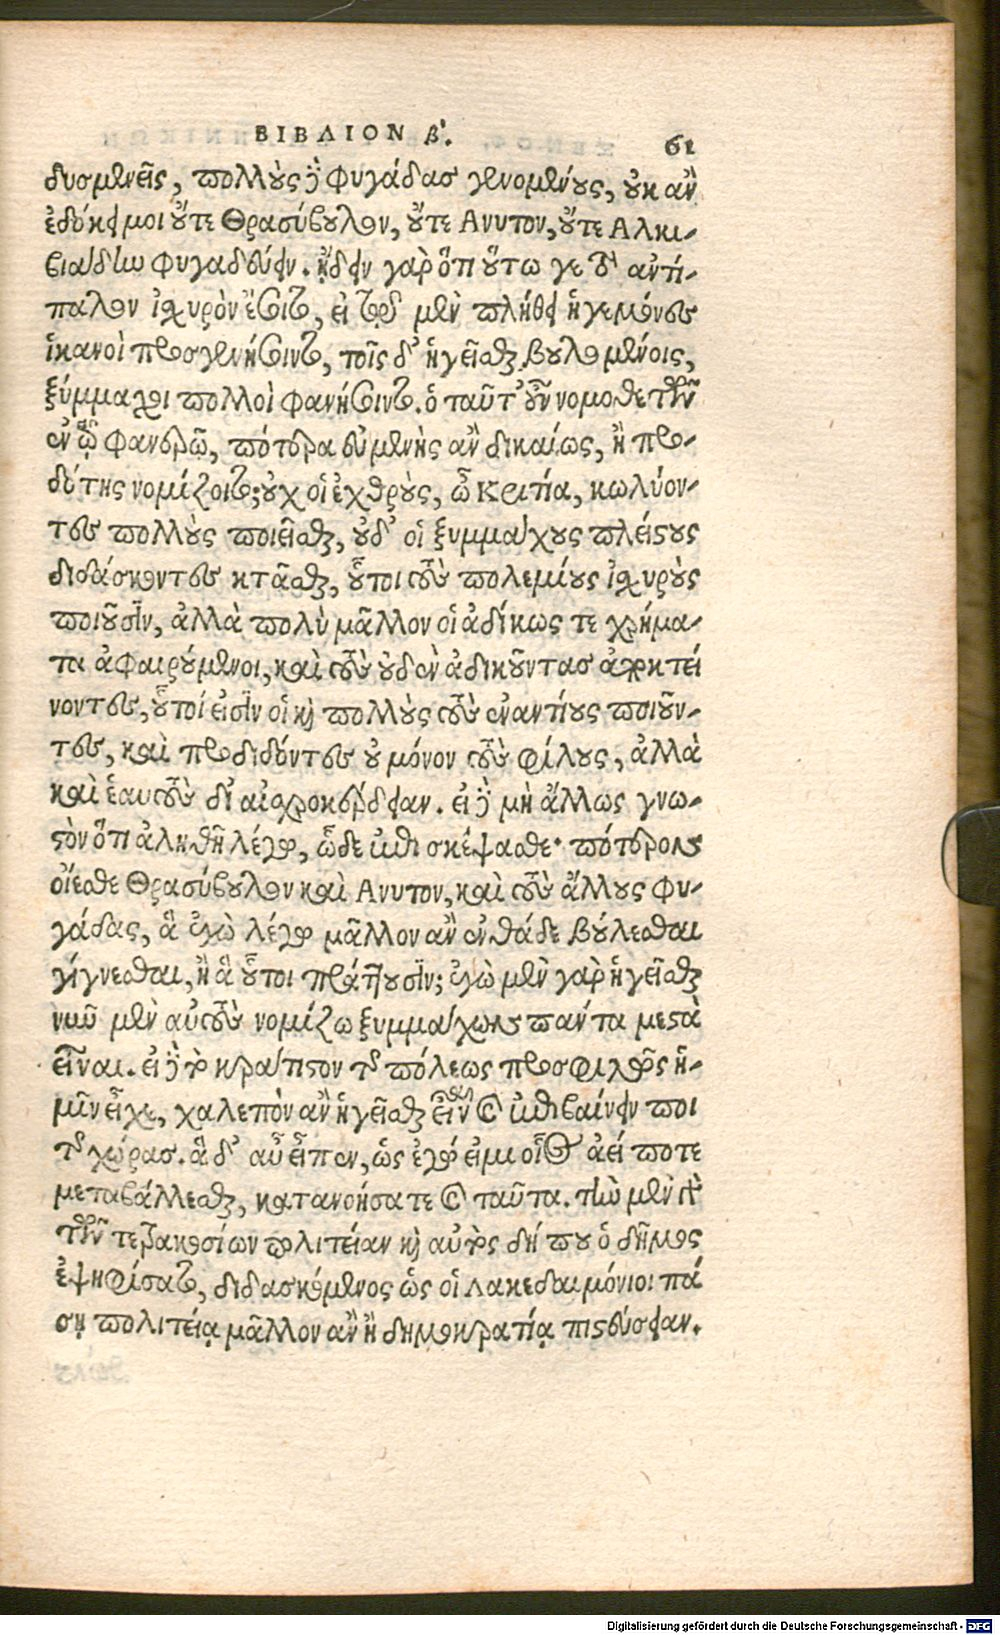 ΒΙΒΛΙΟΝ β'. 61
δυσμενεῖς, πολλοὺς δὲ φυγάδας γενομένους, οὐκ ἂν
ἐδόκει μοι οὔτε Θρασύβουλον, οὔτε Ανυτον, οὔτε Αλκι-
βιάδην φυγαδεύειν. ᾔδειν γὰρ ὅτι οὕτω γε τὸ ἀντί-
παλον ἰσχυρὸν ἔσοιτο, εἰ τῷ μὲν πλήθει ἡγεμόνες
ἱκανοὶ προσγενήσοιντο, τοῖς δ' ἡγεῖσθαι βουλομένοις,
ξύμμαχοι πολλοὶ φανήσοιντο. ὁ ταῦτ' οὖν νομοθετῶν
ἐν τῷ φανερῷ, πότερα εὐμενὴς ἂν δικαίως, ἢ προ-
δότης νομίζοιτο; οὐχ οἱ ἐχθροὺς, ὦ Κριτία, κωλύον-
τες πολλοὺς ποιεῖσθαι, οὐδ' οἱ ξυμμάχους πλείστους
διδάσκοντες κτᾶσθαι, οὗτοι τοὺς πολεμίους ἰσχυροὺς
ποιοῦσιν, ἀλλὰ πολὺ μᾶλλον οἱ ἀδίκως τε χρήμα-
τα ἀφαιρούμενοι, καὶ τοὺς οὐδὲν ἀδικοῦντας ἀποκτεί
νοντες, οὗτοί εἰσιν οἱ καὶ πολλοὺς τοὺς ἐναντίους ποιοῦν-
τες, καὶ προδιδόντες οὐ μόνον τοὺς φίλους, ἀλλὰ
καὶ ἑαυτοὺς δι' αἰσχροκέρδειαν. εἰ δὲ μὴ ἄλλως γνω-
στὸν ὅτι ἀληθῆ λέγω, ὧδε ἐπισκέψασθε· πότερον
οἴεσθε Θρασύβουλον καὶ Ανυτον, καὶ τοὺς ἄλλους φυ-
γάδας, ἃ ἐγὼ λέγω μᾶλλον ἂν ἐνθάδε βούλεσθαι
γίγνεσθαι, ἢ ἃ οὗτοι πράττουσιν; ἐγὼ μὲν γὰρ ἡγεῖσθαι
νῦν μὲν αὐτοὺς νομίζω ξυμμάχων πάντα μεστὰ
εἶναι. εἰ δὲ τὸ κράτιστον τῆς πόλεως προσφιλῶς ἡ-
μῖν εἶχε, χαλεπὸν ἂν ἡγεῖσθαι εἶναι καὶ ἐπιβαίνειν ποι
τῆς χώρας. ἃ δ' αὖ εἶπεν, ὡς ἐγώ εἰμι οἷος ἀεί ποτε
μεταβάλλεσθαι, κατανοήσατε καὶ ταῦτα. τὴν μὲν γὰρ
τῶν τετρακοσίων πολιτείαν καὶ αὐτὸς δή που ὁ δῆμος
ἐψηφίσατο, διδασκόμενος ὡς οἱ Λακεδαιμόνιοι πά
σῃ πολιτείᾳ μᾶλλον ἂν ἢ δημοκρατίᾳ πιστεύσειαν.
Digitalisierung gefördert durch die Deutsche Forschungsgemeinschaft - DFG